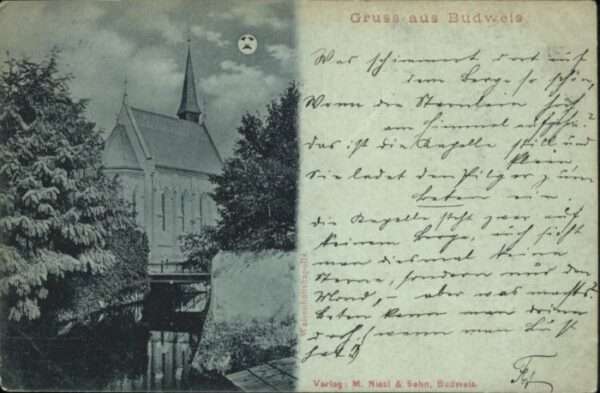 Gruss aus Budweis
Was schimmert dort auf
dem Berge so schön,
Wenn die Sternlein hoch
am Himmel aufgehn?
Das ist die Kapelle still und
klein
Sie ladet den Pilger zum
beten ein.
die Kapelle steht zwar auf
keinem Berge, auch sieht
man diesmal keine
Sterne, sondern nur den
Mond, – aber was machts.
beten kann man drinn
doch (wenn man Lust
hat.)
Verlag: M. Nissl & Sohn, Budweis.